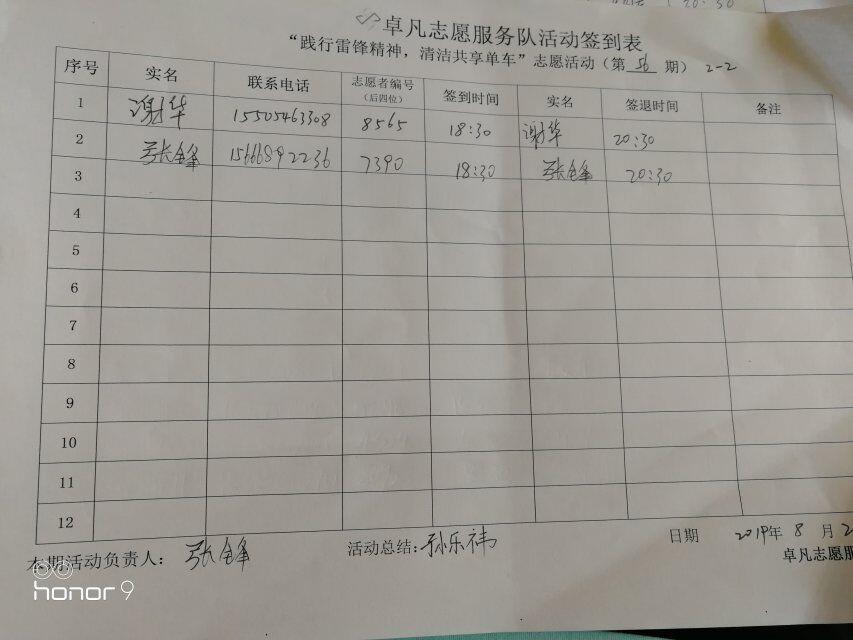 20:30
卓凡志愿服务队活动签到表
“践行雷锋精神，清洁共享单车”志愿活动（第 56 期） 2-2
序号 实名 联系电话 志愿者编号（后四位） 签到时间 实名 签退时间 备注
1 谢华 15505463308 8565 18:30 谢华 20:30
2 张锋 15666892236 7390 18:30 张锋 20:30
3
4
5
6
7
8
9
10
11
12
本期活动负责人： 张锋 活动总结: 孙乐祎 日期 2019年 8 月 2
卓凡志愿服
honor 9